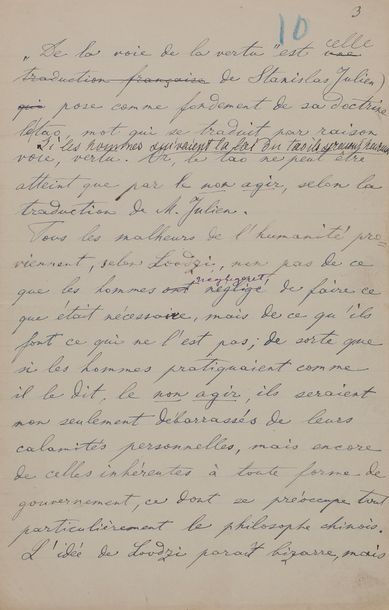 3
10
„De la voie de la vertu" est celle
traduction française de Stanislas Julien)
qui pose comme fondement de sa doctrine
le tao, mot qui se traduit par raison
Si les hommes suivaient la loi du tao ils seraient heureux
voie, vertu. Or, le tao ne peut être
atteint que par le non agir, selon la
traduction de M. Julien.
Tous les malheurs de l'humanité pro-
viennent, selon Loodzi, non pas de ce
négligent
que les hommes ont négligé de faire ce
que était nécessaire, mais de ce qu'ils
font ce qui ne l'est pas; de sorte que
si les hommes pratiquaient comme
il le dit, le non agir, ils seraient
non seulement débarrassés de leurs
calamités personnelles, mais encore
de celles inhérentes à toute forme de
gouvernement, ce dont se préoccupe tout
particulièrement le philosophe chinois.
L'idée de Loodzi paraît bizarre, mais